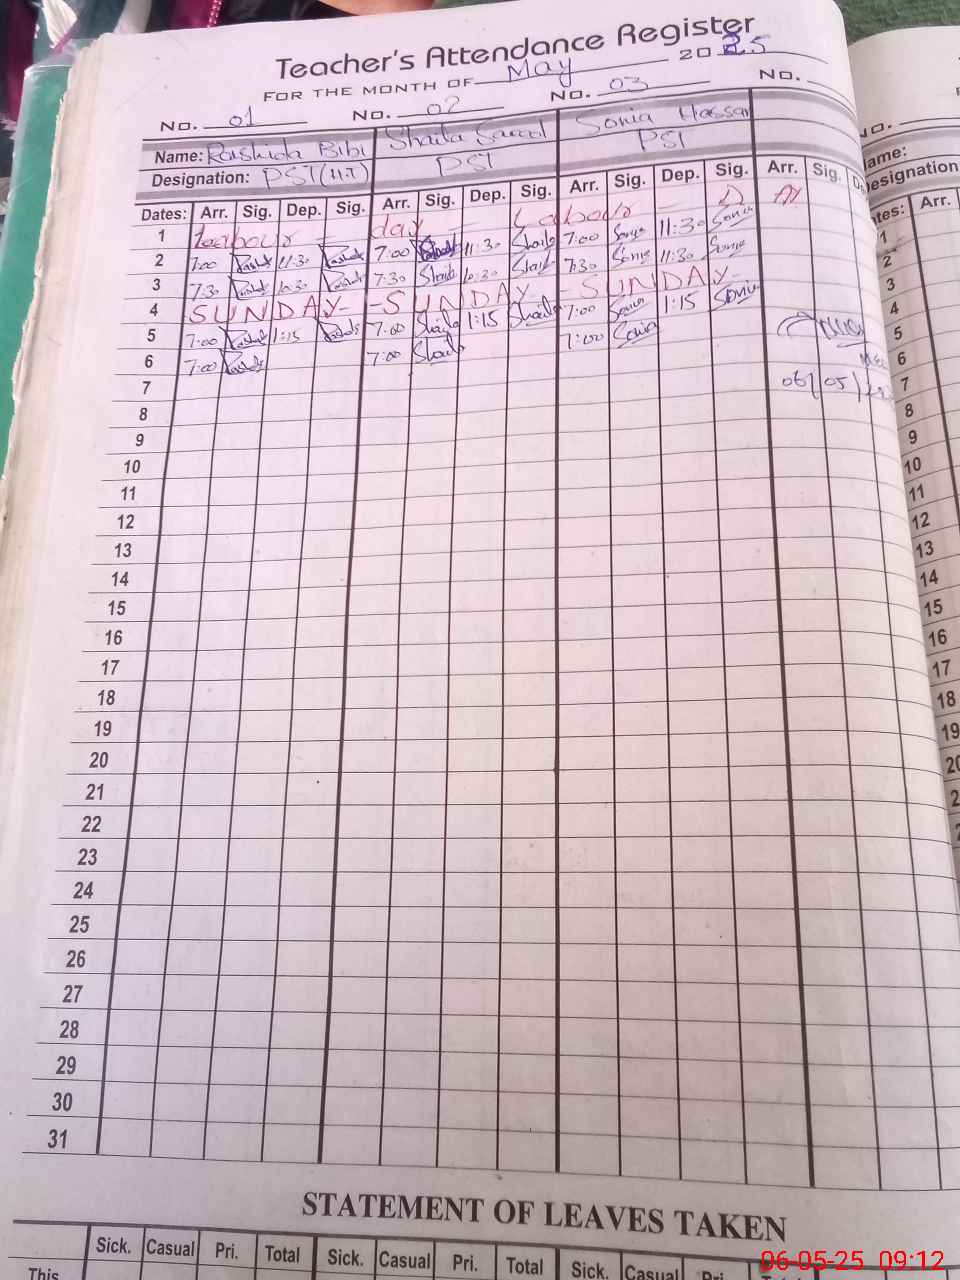 Teacher's Attendance Register
FOR THE MONTH OF May 2025
No. 01 No. 02 No. 03 No.
Name: Rashida Bibi Shaila Sonia Hassan
Designation: PST (HT) PST PST
Dates: Arr. Sig. Dep. Sig. Arr. Sig. Dep. Sig. Arr. Sig. Dep. Sig. Arr. Sig.
1 Labour - day Labour - DAY
2 7:00 11:30 7:00 11:30 Shaila 7:00 Sonia 11:30 Sonia
3 7:30 10:30 7:30 Shaila 10:30 Shaila 7:30 Sonia 11:30 Sonia
4 SUNDAY - SUNDAY - SUNDAY -
5 7:00 1:15 7:00 Shaila 1:15 Shaila 7:00 Sonia 1:15 Sonia
6 7:00 7:00 Shaila 7:00 Sonia
7 06/05/
8
9
10
11
12
13
14
15
16
17
18
19
20
21
22
23
24
25
26
27
28
29
30
31
STATEMENT OF LEAVES TAKEN
Sick. Casual Pri. Total Sick. Casual Pri. Total Sick. Casual Pri. Total
This
No.
Name:
Designation
Arr.
1
2
3
4
5
6
7
8
9
10
11
12
13
14
15
16
17
18
19
20
06-05-25 09:12